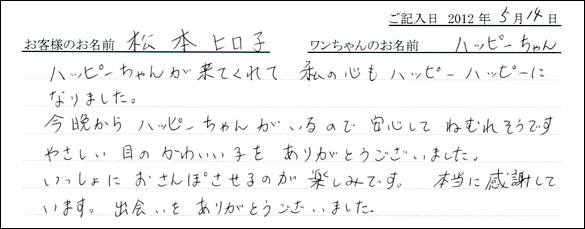 ご記入日 2012年 5月 14日
お客様のお名前 松本ヒロ子 ワンちゃんのお名前 ハッピーちゃん
ハッピーちゃんが来てくれて 私の心も ハッピーハッピーに
なりました。
今晩から ハッピーちゃんがいるので 安心して ねむれそうです
やさしい目の かわいい子を ありがとうございました。
いっしょに おさんぽさせるのが 楽しみです。 本当に感謝して
います。 出会いを ありがとうございました。